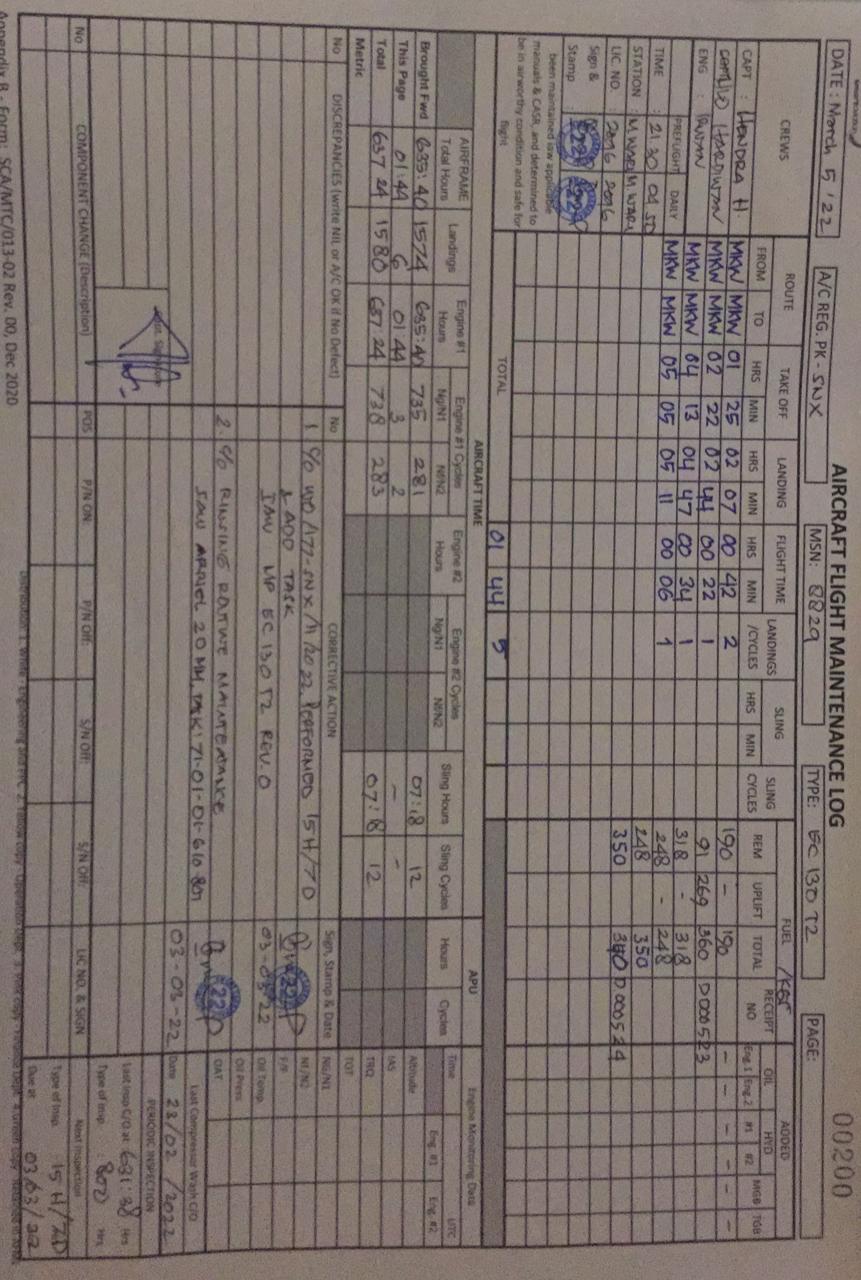 AIRCRAFT FLIGHT MAINTENANCE LOG
00200
DATE: March 5 '22
A/C REG. PK - SNX
MSN: 8829
TYPE: EC 130 T2
PAGE:
CREWS ROUTE TAKE OFF LANDING FLIGHT TIME LANDINGS /CYCLES SLING SLING CYCLES FUEL /KG RECEIPT NO OIL HYD ADDED
FROM TO HRS MIN HRS MIN HRS MIN HRS MIN REM UPLIFT TOTAL Eng.1 Eng.2 #1 #2 MGB TGB
CAPT : HENDRA H. MKW MKW 01 25 02 07 00 42 2 190 - 190 - - - - - -
HARDIWAN MKW MKW 02 22 02 44 00 22 1 91 269 360 D000523
ENG : MKW MKW 04 13 04 47 00 34 1 318 - 318
PREFLIGHT DAILY MKW MKW 05 05 05 11 00 06 1 248 - 248
TIME : 21 30 04 50 248 350
STATION : 350 D000524
LIC. NO. : 2096 2096
Sign & Stamp
been maintained iaw applicable
manuals & CASR, and determined to
be in airworthy condition and safe for
flight
TOTAL 01 44 5
AIRCRAFT TIME
AIRFRAME Total Hours Landings Engine #1 Hours Engine #1 Cycles Ng/N1 Nf/N2 Engine #2 Hours Engine #2 Cycles Ng/N1 Nf/N2 Sling Hours Sling Cycles APU Hours Cycles
Brought Fwd 635:40 1574 635:40 735 281 07:18 12
This Page 01:44 6 01 44 3 2 - -
Total 637 24 1580 637 24 738 283 07:18 12
Metric
Engine Monitoring Data
Time UTC
Eng. #1 Eng. #2
Altitude
IAS
TRQ
TOT
NG/N1
Nf/N2
F/F
Oil Temp.
Oil Press
OAT
No DISCREPANCIES (write NIL or A/C OK if No Defect) No CORRECTIVE ACTION Sign, Stamp & Date
1 % WO/177-SNX/II/2022 PERFORMED 15H/7D
& ADD TASK
IAW MP EC 130 T2 REV.0
03-03-22
2. % RINSING ROTINE MAINTENANCE
IAW ARRIEL 2D MM, TASK: 71-01-01-610-801
03-03-22
Last Compressor Wash C/O
Date 23/02 /2022
PERIODIC INSPECTION
Last Insp C/O at 631:38 Hrs
Type of Insp. : 800 Hrs
Next Inspection
Type of Insp. 15 H/7D
Due at 03/03/22
No COMPONENT CHANGE (Description) POS P/N ON: P/N Off: S/N Off: S/N Off: LIC NO. & SIGN
Appendix B - Form: SCA/MTC/013-02 Rev. 00, Dec 2020